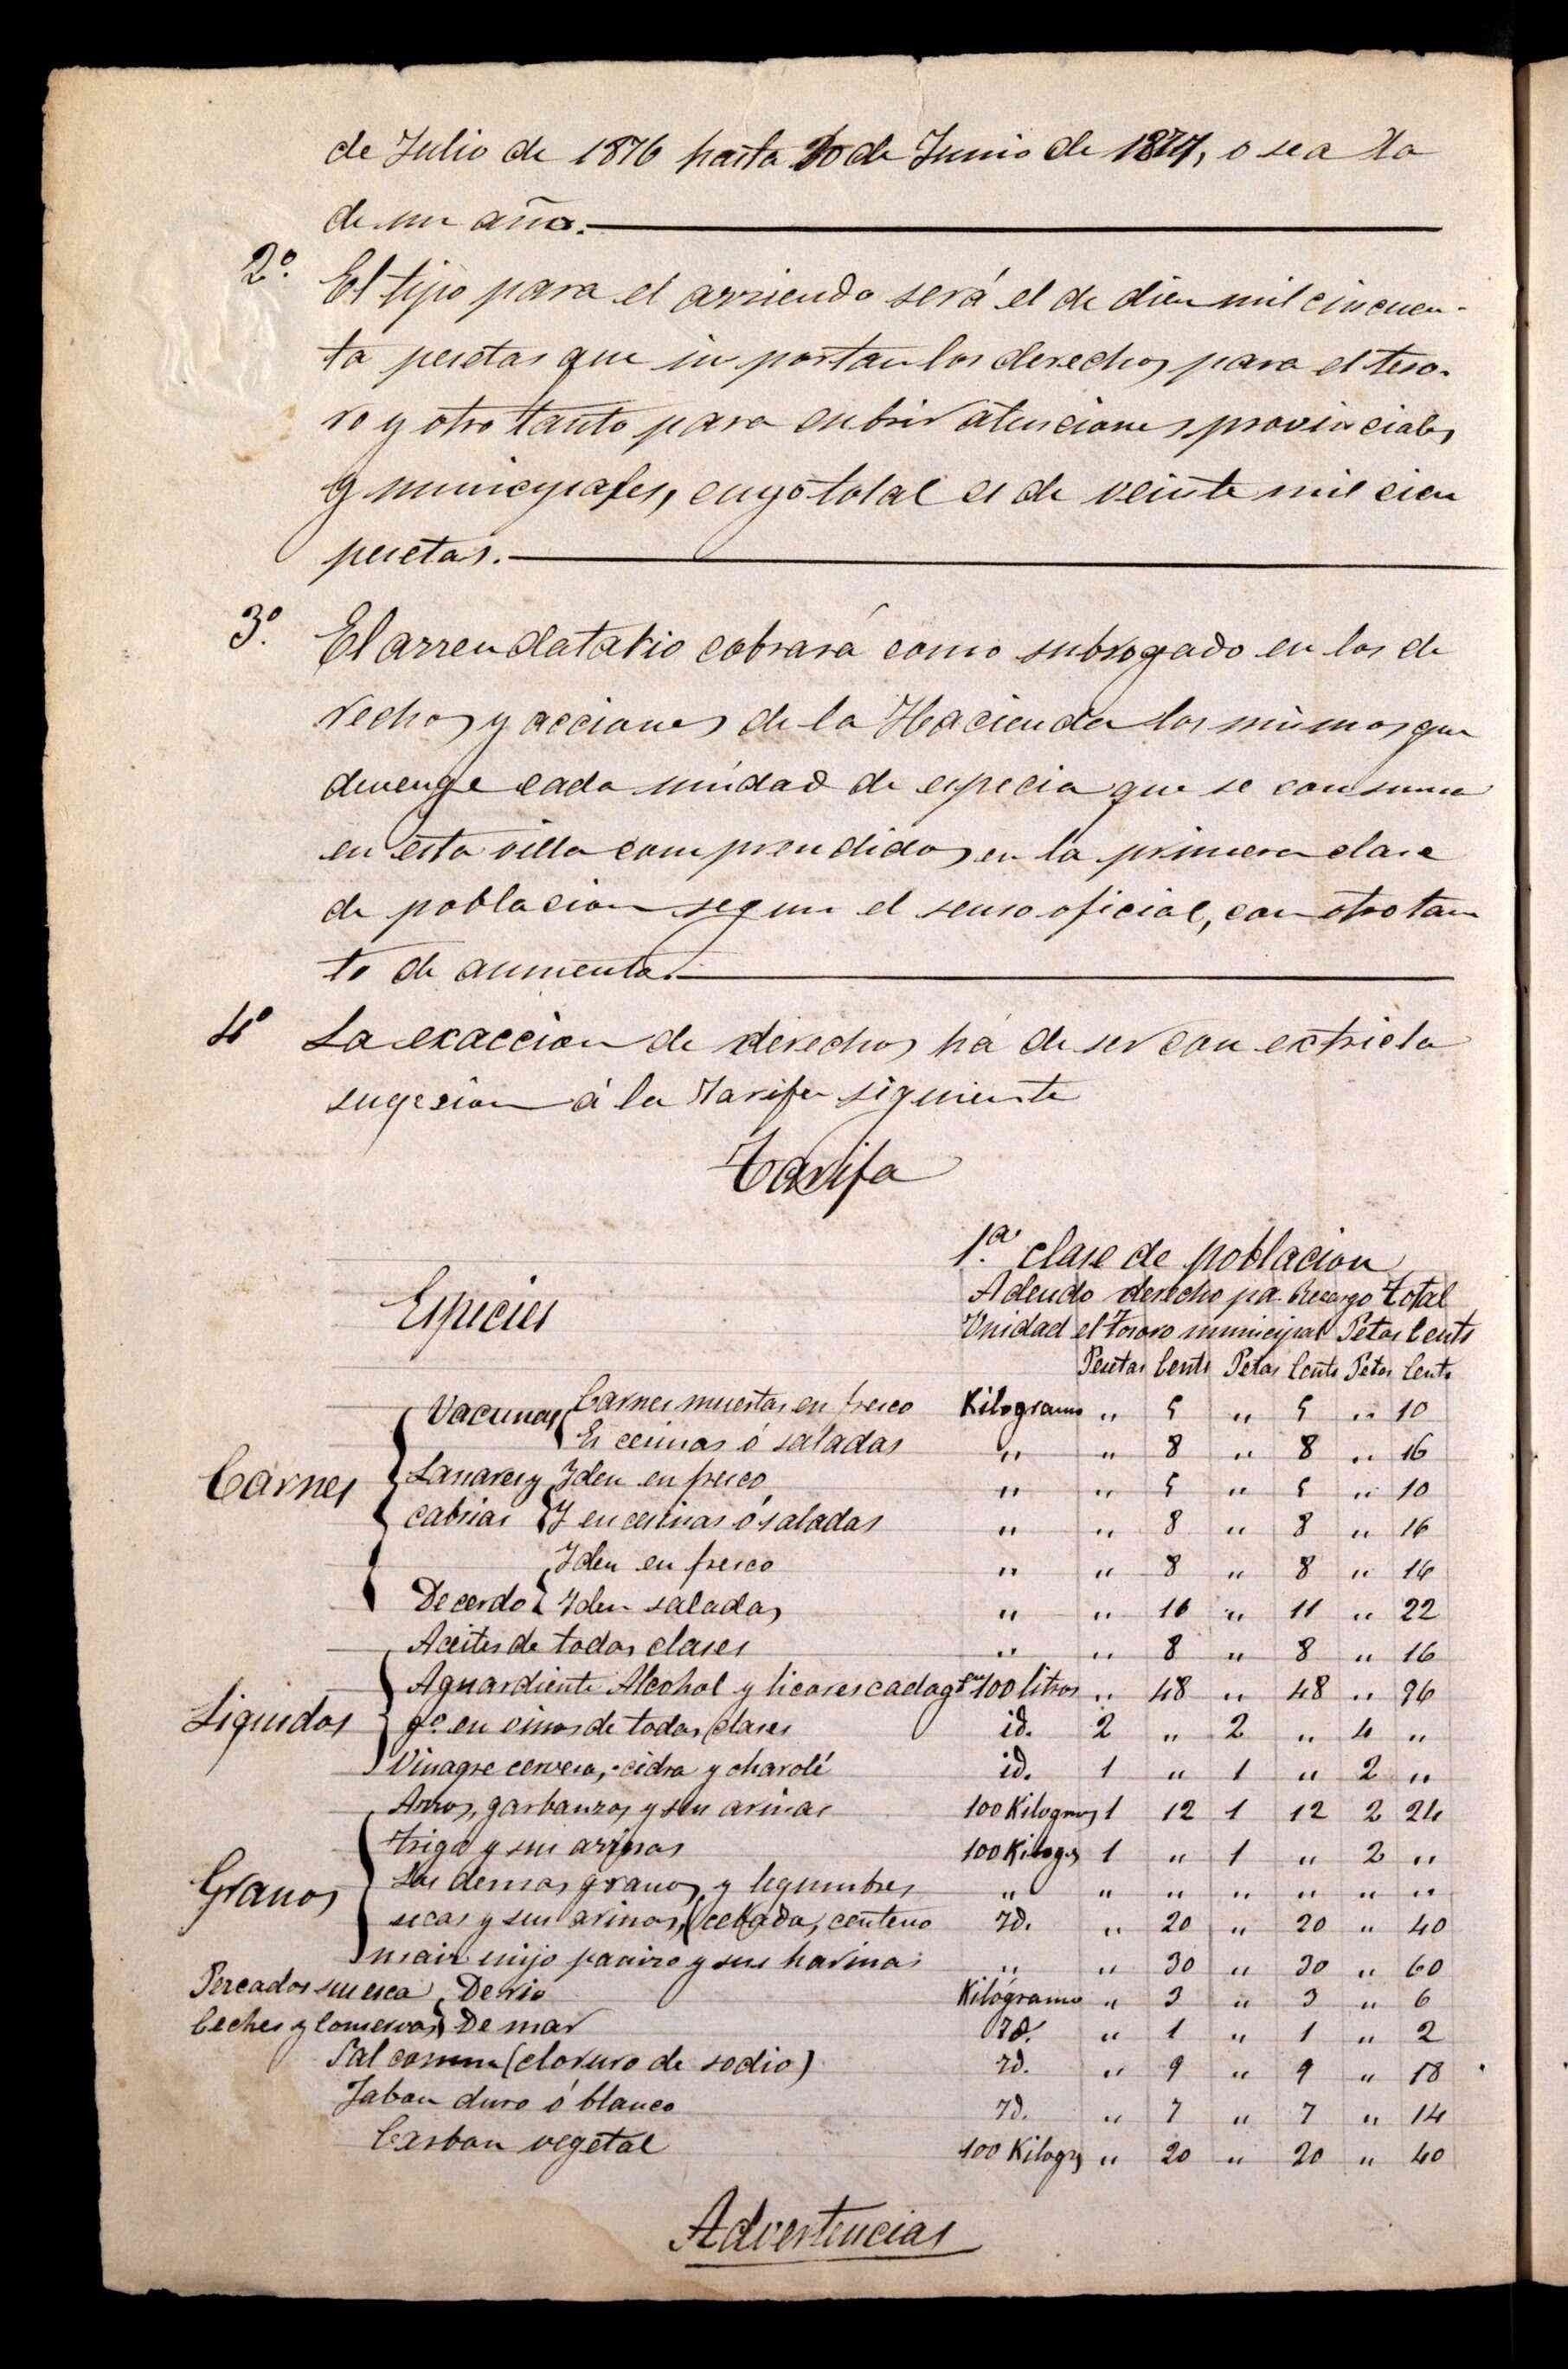 de Julio de 1876 hasta 30 de Junio de 1877, o sea la
de un año.
2º. El tipo para el arriendo será el de diez mil cincuen-
ta pesetas que importan los derechos para el teso-
ro y otro tanto para cubrir atenciones provinciales
y municipales, cuyo total es de veinte mil cien
pesetas.
3º. El arrendatario cobrará como subrogado en los de
rechos y acciones de la Hacienda los mismos que
devenge cada unidad de especia que se consuma
en esta villa comprendidos en la primera clase
de poblacion segun el senso oficial, con otro tan
to de aumento.
4º La exaccion de derechos há de ser con extricta
sugecion á la Tarifa siguiente
Tarifa
1.ª clase de poblacion
Adeudo derecho pa. Recargo Total
Especies Unidad el Tesoro municipal Petas Cents
Pesetas Cents Petas Cents Petas Cents
Vacunas Carnes muertas en fresco Kilogramo " 5 " 5 " 10
En cecinas ó saladas " " 8 " 8 " 16
Carnes Lanares y Iden en fresco " " 5 " 5 " 10
cabrias Y en cecinas ó saladas " " 8 " 8 " 16
Iden en fresco " " 8 " 8 " 16
De cerdo Iden saladas " " 11 " 11 " 22
Aceites de todas clases " " 8 " 8 " 16
Aguardiente Alcohol y licores cada gº en 100 litros " 48 " 48 " 96
Liquidos gº en vinos de todas clases id. 2 " 2 " 4 "
Vinagre cerveza, cidra y charolí id. 1 " 1 " 2 "
Arros, garbanzos y sus arinas 100 Kilogmos 1 12 1 12 2 24
Trigo y sus arinas 100 Kilogs 1 " 1 " 2 "
Granos Los demas granos y legumbres " " " " " " "
secas y sus arinas, (cebada, centeno Id. " 20 " 20 " 40
maiz mijo panizo y sus harinas " " 30 " 30 " 60
Pescados sus esca De rio Kilógramo " 3 " 3 " 6
beches y Conservas De mar Id. " 1 " 1 " 2
Sal comun (cloruro de sodio) Id. " 9 " 9 " 18
Jabon duro ó blanco Id. " 7 " 7 " 14
Carbon vegetal 100 Kilogs " 20 " 20 " 40
Advertencias